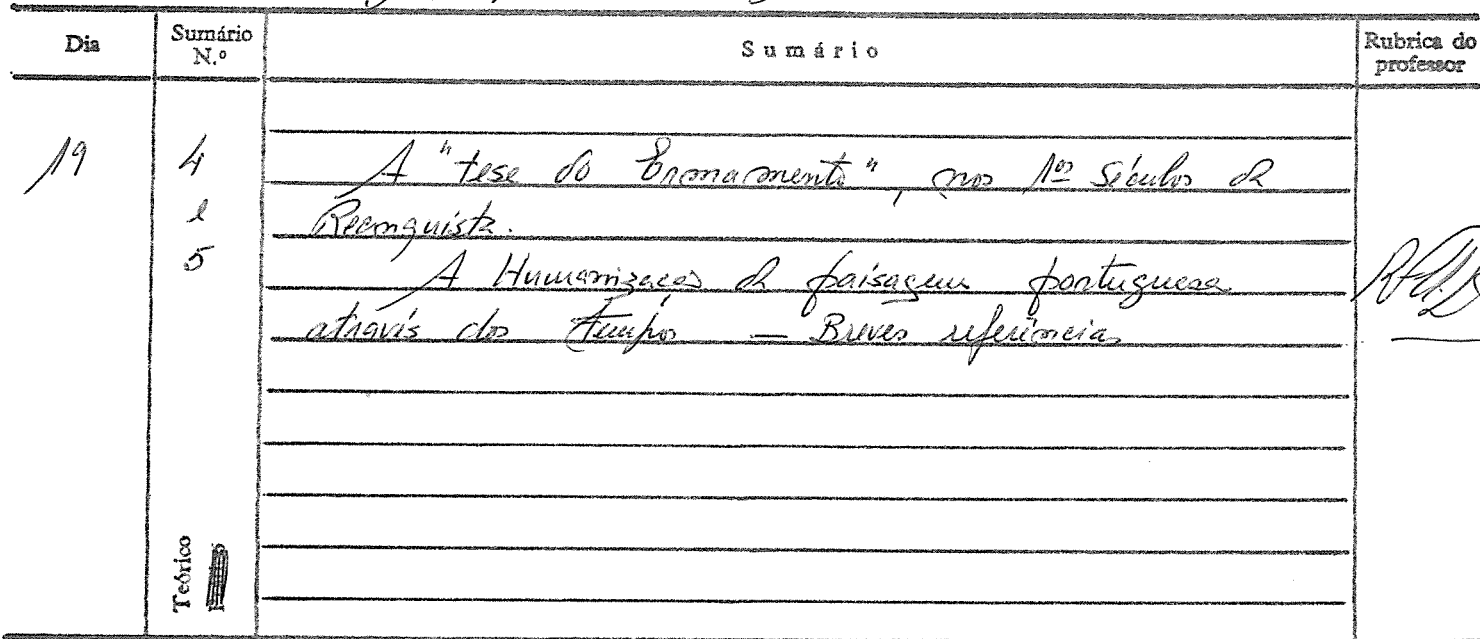 Dia
Sumário N.º
Sumário
Rubrica do professor
19
4
e
5
A "tese do Ermamento", nos 1os Séculos da
Reconquista.
A Humanização da paisagem portuguesa
através dos Tempos — Breves referências
Teórico